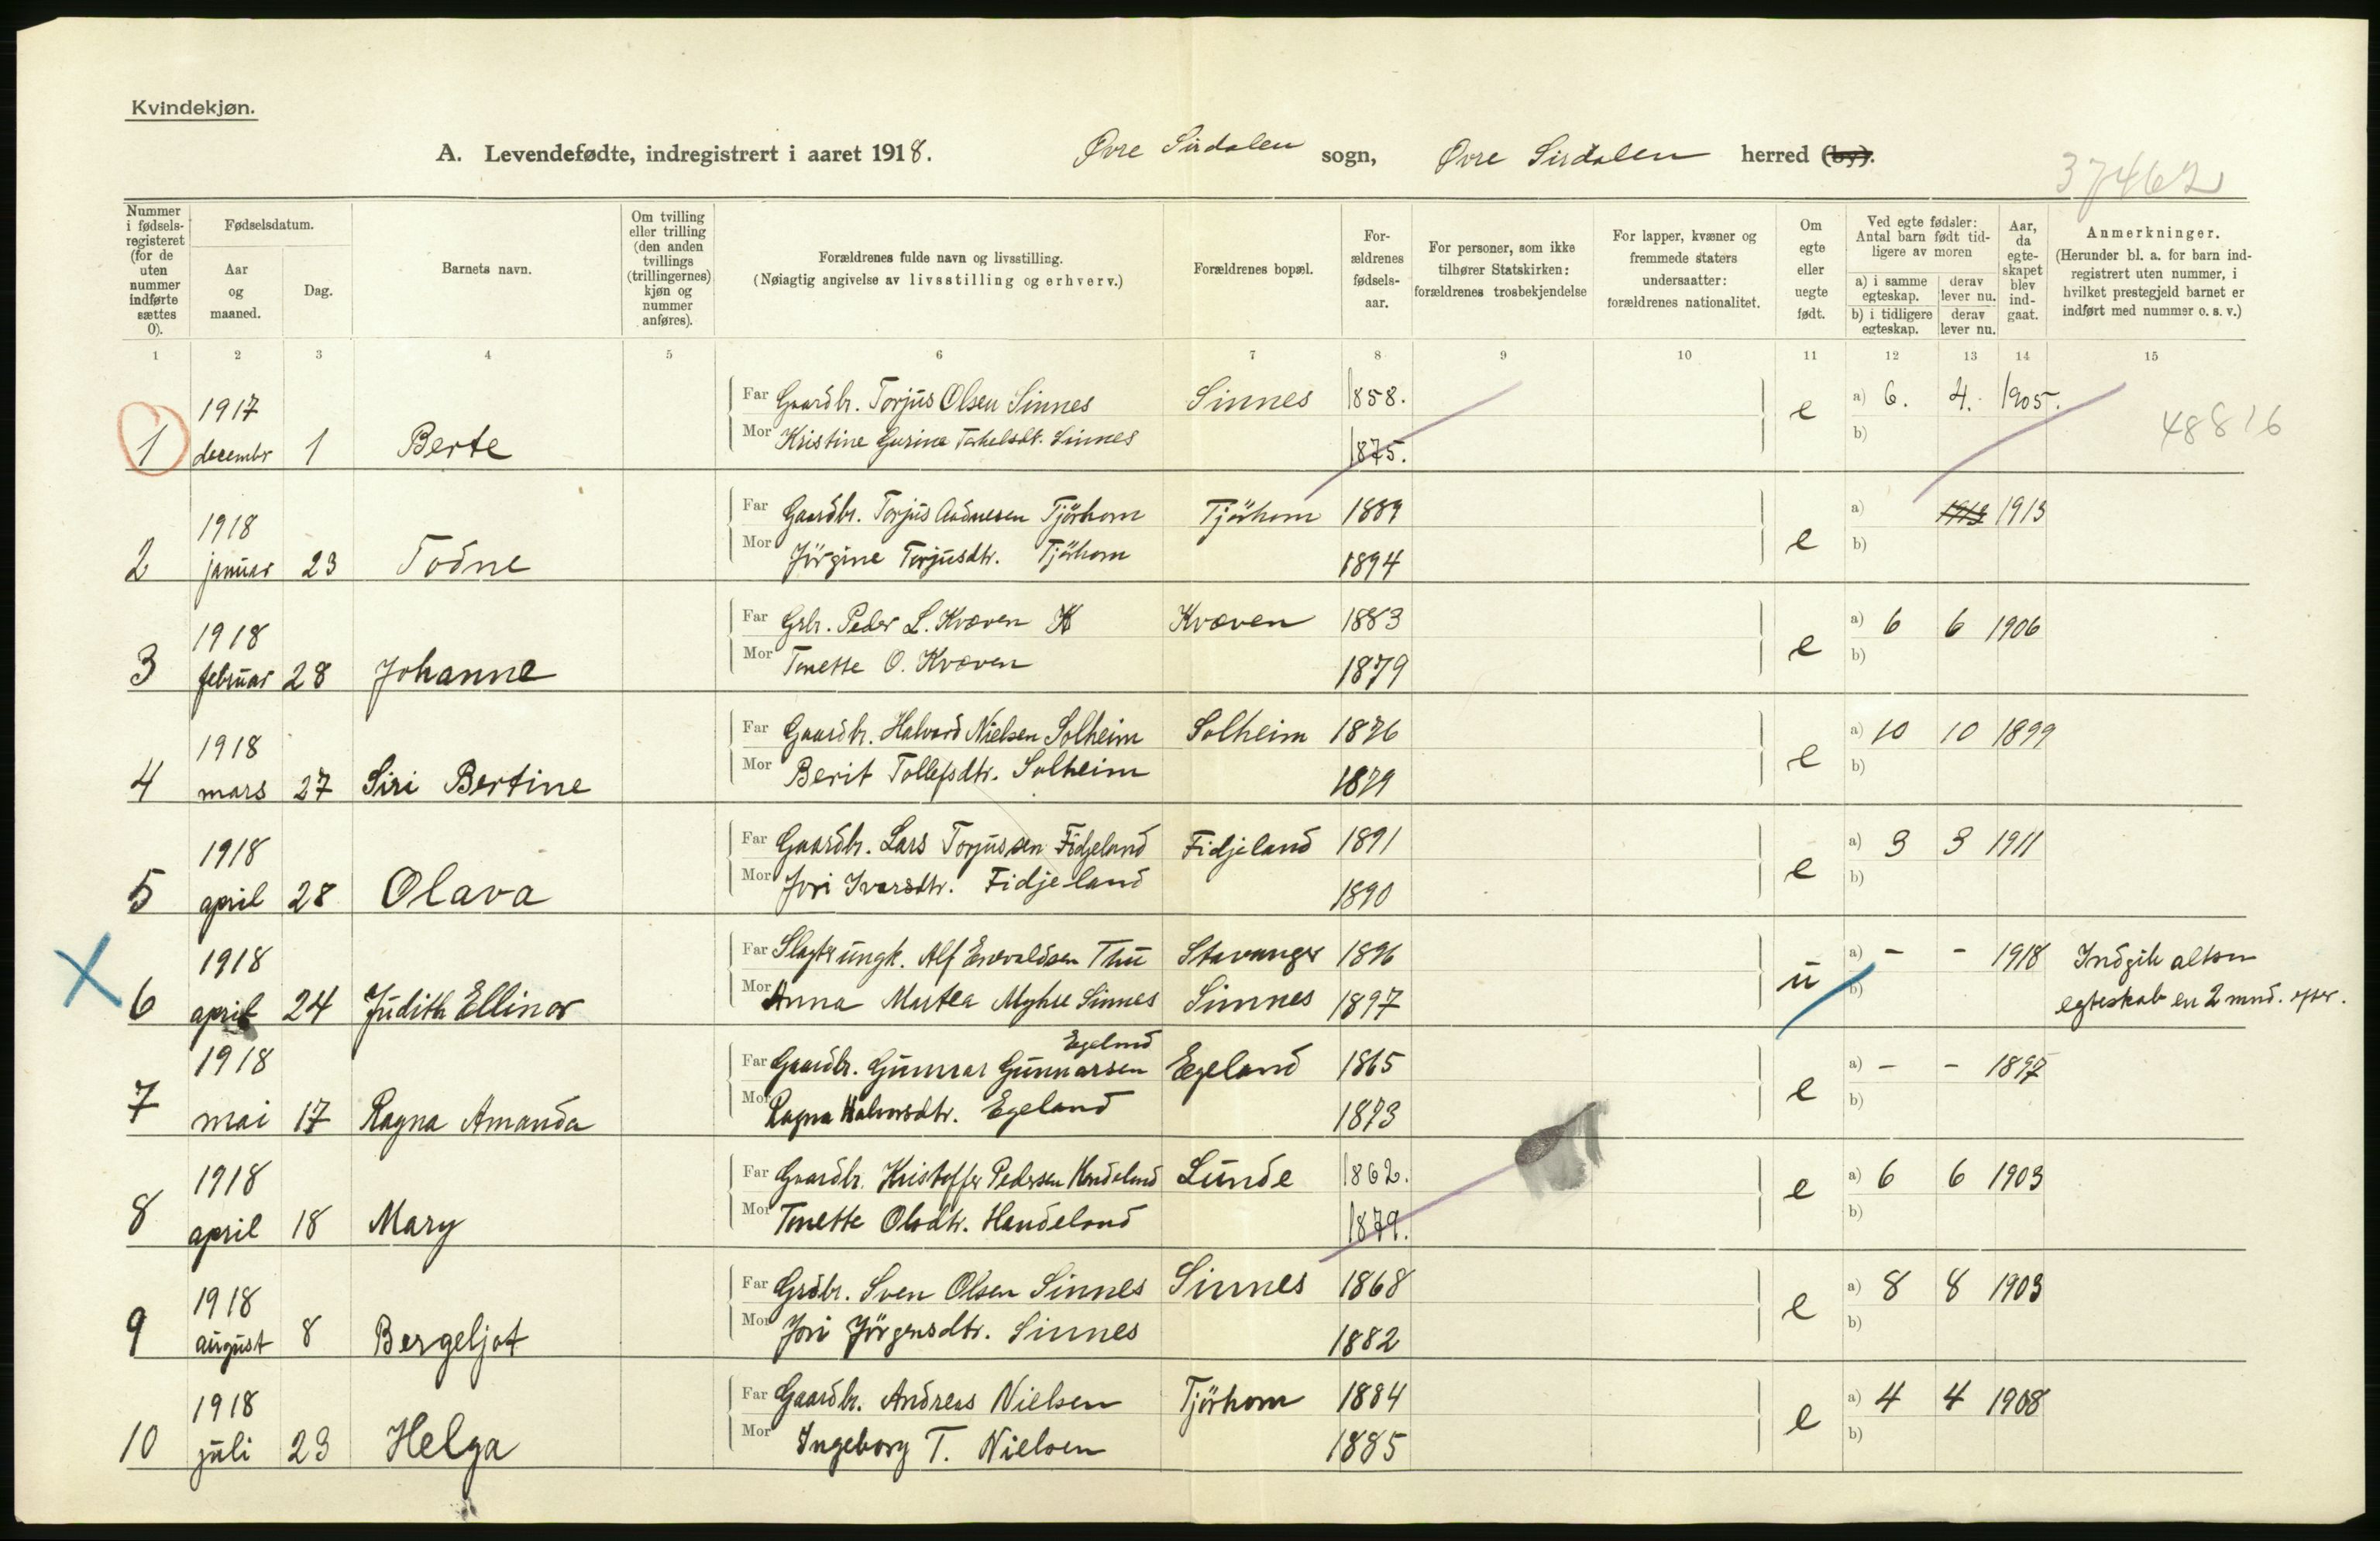 Kvindekjøn.
A. Levendefødte, indregistrert i aaret 1918. Øvre Sirdalen sogn, Øvre Sirdalen herred (by).
37462
Nummer i fødselsregisteret (for de uten nummer indførte sættes 0).
Fødselsdatum.
Aar og maaned.
Dag.
Barnets navn.
Om tvilling eller trilling (den anden tvillings (trillingernes) kjøn og nummer anføres).
Forældrenes fulde navn og livsstilling.
(Nøiagtig angivelse av livsstilling og erhverv.)
Forældrenes bopæl.
Forældrenes fødselsaar.
For personer, som ikke tilhører Statskirken: forældrenes trosbekjendelse
For lapper, kvæner og fremmede staters undersaatter: forældrenes nationalitet.
Om egte eller uegte født.
Ved egte fødsler: Antal barn født tidligere av moren
a) i samme egteskap. derav lever nu.
b) i tidligere egteskap. derav lever nu.
Aar, da egteskapet blev indgaat.
Anmerkninger.
(Herunder bl. a. for barn indregistrert uten nummer, i hvilket prestegjeld barnet er indført med nummer o. s. v.)
1 2 3 4 5 6 7 8 9 10 11 12 13 14 15
1917 Far Gaardbr. Torjus Olsen Sinnes Sinnes 1858. e a) 6. 4. 1905. 48816
1 decembr 1 Berte Mor Kristine Gurine Takelsdt. Sinnes 1875. b)
1918 Far Gaardbr. Torjus Aadnesen Tjörhom Tjörhom 1889 e a) 1913 1913
2 januar 23 Todne Mor Jörgine Torjusdtr. Tjörhom 1894 b)
1918 Far Grbr. Peder L. Kvæven Kvæven 1883 e a) 6 6 1906
3 februar 28 Johanne Mor Tonette O. Kvæven 1879 b)
1918 Far Gaardbr. Halvard Nielsen Solheim Solheim 1876 e a) 10 10 1899
4 mars 27 Siri Bertine Mor Berit Tollefsdtr. Solheim 1879 b)
1918 Far Gaardbr. Lars Torjussen Fidjeland Fidjeland 1891 e a) 3 3 1911
5 april 28 Olava Mor Jori Ivarsdtr. Fidjeland 1890 b)
1918 Far Slagter ungk. Alf Enevaldsen Thu Stavanger 1896 u a) - - 1918 Indgik altsaa
6 april 24 Judith Ellinor Mor Anna Martea Myhre Sinnes Sinnes 1897 b) egteskab en 2 mnd. efter.
1918 Far Gaardbr. Gunnar Gunnarsen Egeland Egeland 1865 e a) - - 1897
7 mai 17 Ragna Amanda Mor Ragna Halvorsdtr. Egeland 1873 b)
1918 Far Gaardbr. Kristoffer Pedersen Handeland Lunde 1862. e a) 6 6 1903
8 april 18 Mary Mor Tonette Olsdtr. Handeland 1879. b)
1918 Far Grdbr. Sven Olsen Sinnes Sinnes 1868 e a) 8 8 1903
9 august 8 Bergeljot Mor Jori Jörgensdtr. Sinnes 1882 b)
1918 Far Gaardbr. Andreas Nielsen Tjörhom 1884 e a) 4 4 1908
10 juli 23 Helga Mor Ingeborg T. Nielsen 1885 b)